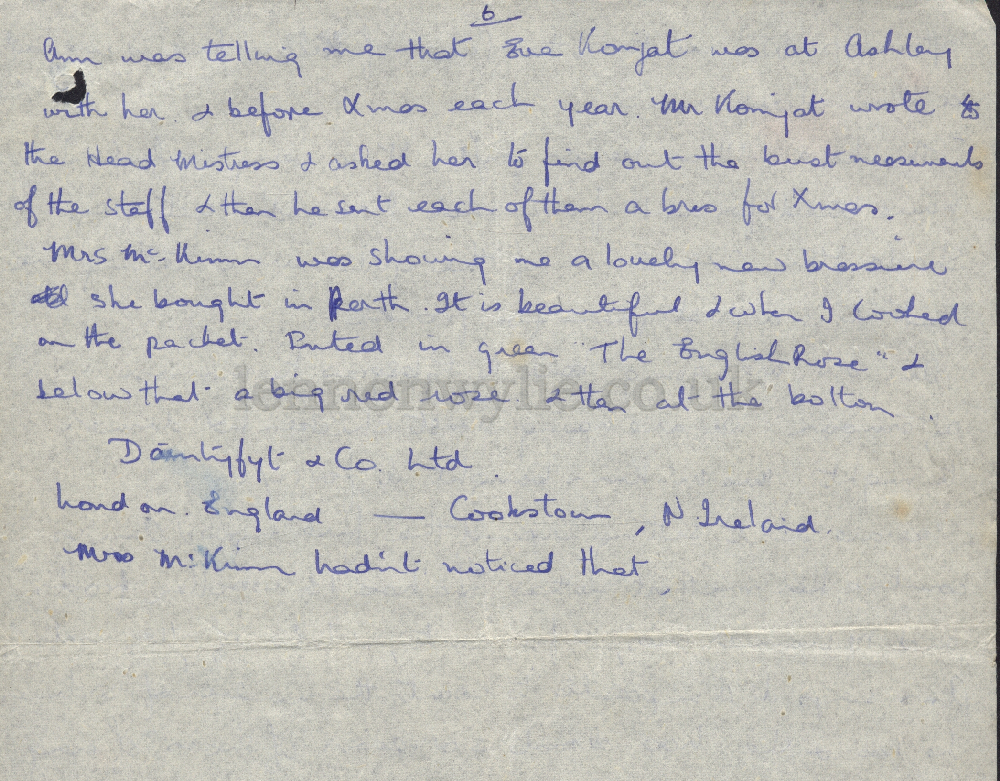 6
Ann was telling me that Eva Komjat was at Ashley
with her. & before Xmas each year. Mr Komjat wrote to
the Head Mistress & asked her to find out the bust measurements
of the staff & then he sent each of them a bra for Xmas.
Mrs McKimm was showing me a lovely new brassiere
she bought in Perth. It is beautiful & when I looked
on the packet. Printed in green "The English Rose" &
below that a big red rose & then at the bottom.
Daintyfyt & Co. Ltd.
London. England — Cookstown, N. Ireland.
Mrs McKimm hadn't noticed that.
lennonwylie.co.uk